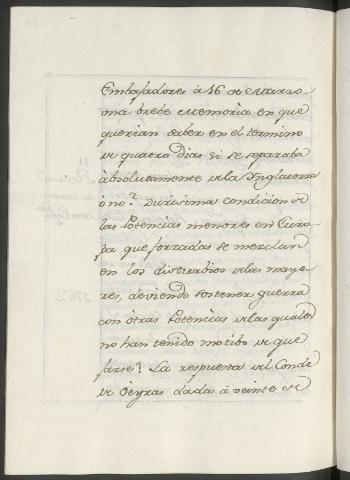 Embaſadores à 16 de Marzo
una brebe Memòria en que
querian saber en el termino
de quatro dias si se separaba
àbsolutamente dela Ynglaterra
ò no? Durisima condicion de
las Potencias menores en Euro-
pa que forzadas se mezclan
en los disturbios delas mayo-
res, deviendo sostener guerra
con òtras Potencias delas quales
no han tenido motibo de que
jarse! La respuesta del Conde
de Oeyras dada à veinte de